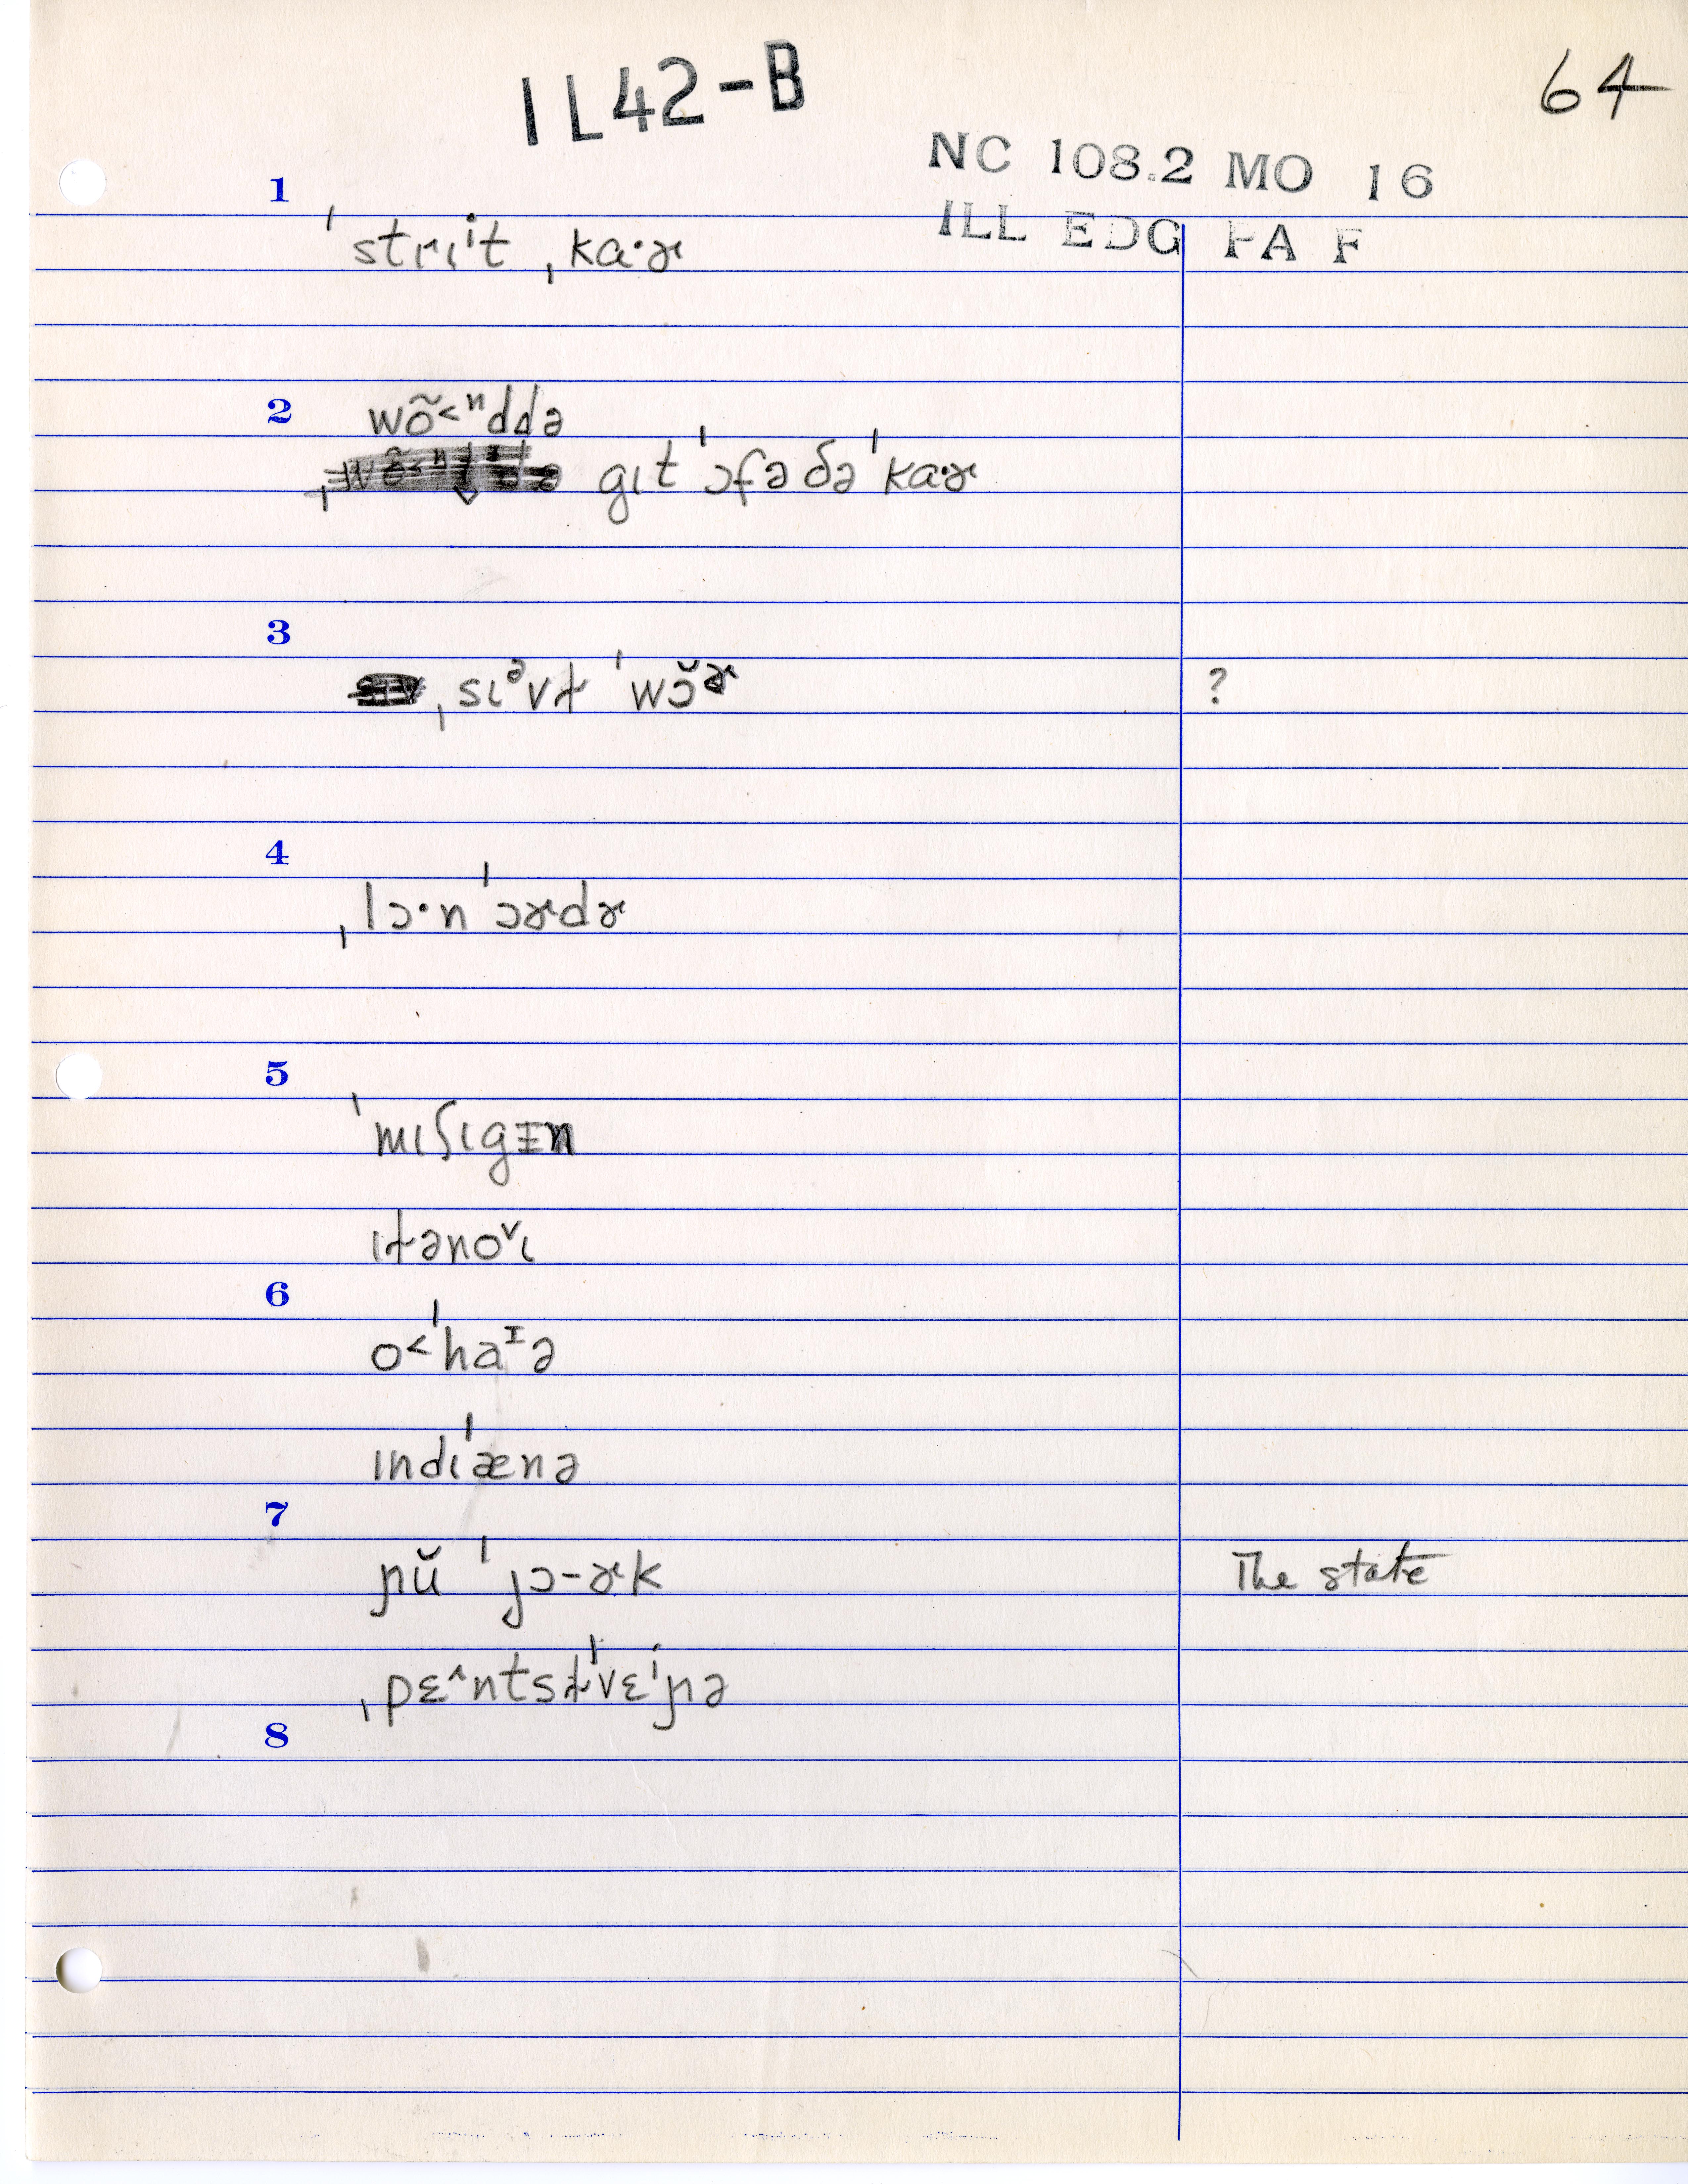 IL42-B
64
NC 108.2 MO 16
ILL EDG PA F
1
ˈstrɩⁱt ˌka·ɚ
2
wõ˂ⁿddə
gɩt ˈɔfə ðə ˈka·ɚ
3
ˌsɩᵊvɫ ˈwɔ̆ɚ ?
4
ˌlɔ·n ˈɔɚdɚ
5
ˈmɩʃɩgɪn
ɩɫənoˇɩ
6
o˂ˈhaᴵə
ɩndɩˈænə
7
ɲŭ ˈjɔ-ɚk The state
ˌpɛ^ntsɫˈvɛⁱɲə
8